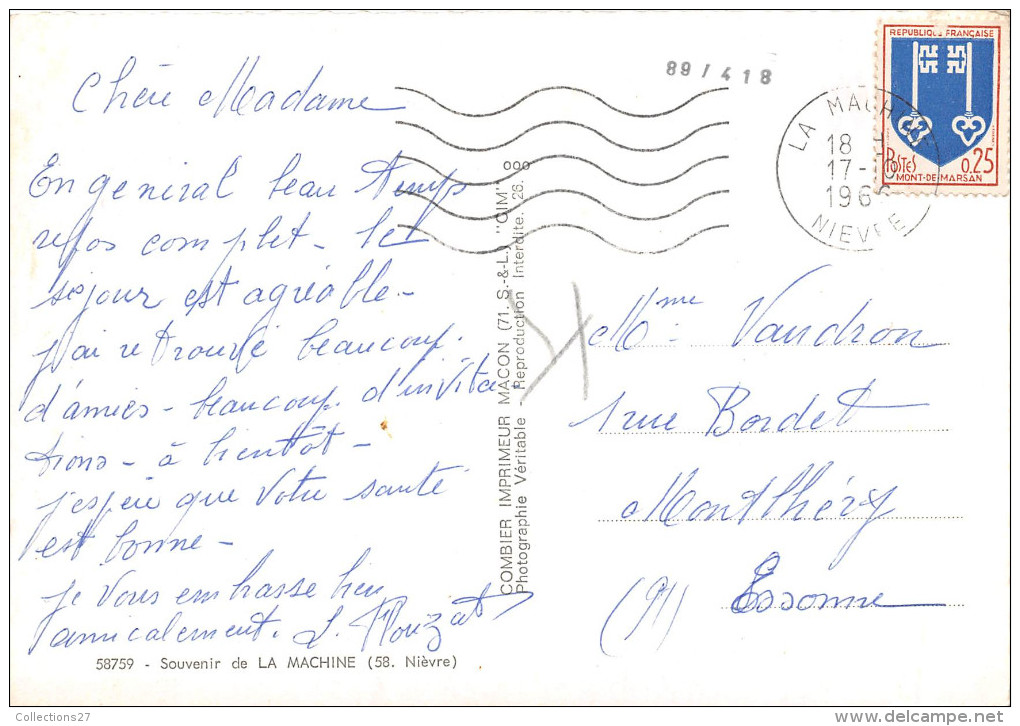 89/418
REPUBLIQUE FRANÇAISE
POSTES 0.25
MONT-DE-MARSAN
LA MACHINE
18 H
17-
1966
NIEVRE
Chère Madame
En general beau temps
repos complet - le
séjour est agréable -
j'ai retrouvé beaucoup
d'amies - beaucoup d'invita
tions - à bientôt -
j'espère que votre santé
est bonne -
je vous embrasse bien
amicalement.
COMBIER IMPRIMEUR MACON (71. S.-&-L.) "CIM"
Photographie Véritable - Reproduction Interdite.
Mme Vaudron
1 rue Bordet
Montlhéry
(91) Essonne
58759 - Souvenir de LA MACHINE (58. Nièvre)
Collections27
www.delcampe.net